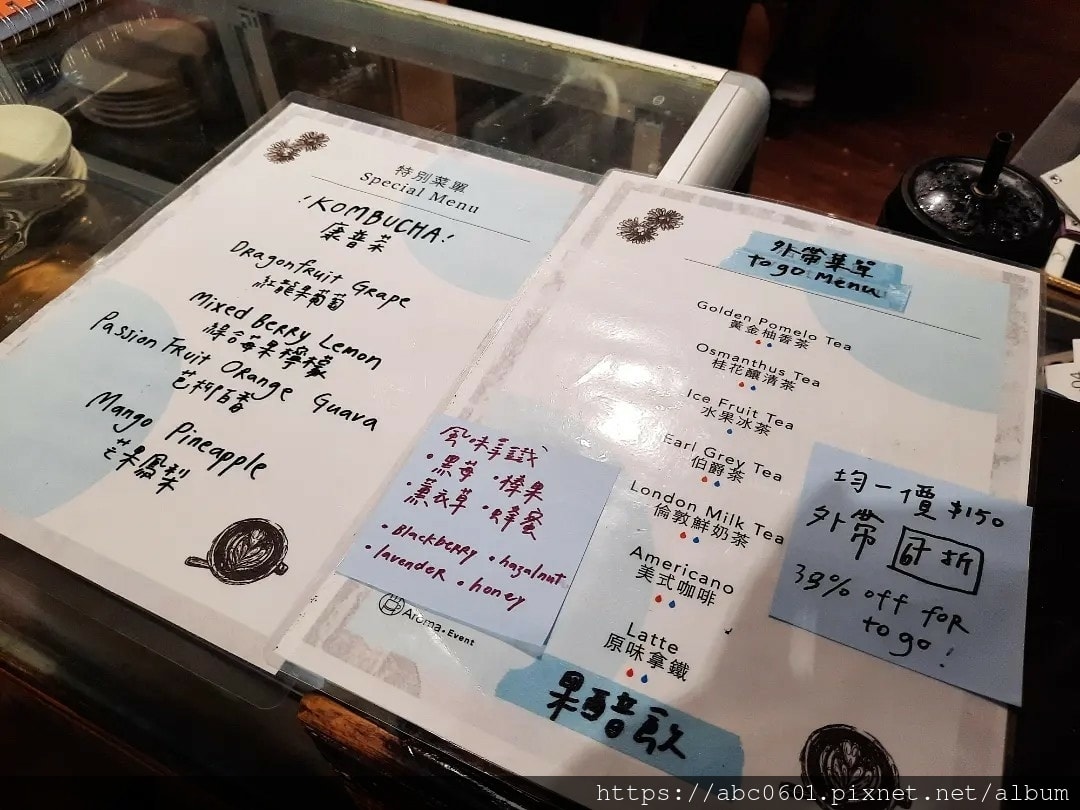 特別菜單
Special Menu
! KOMBUCHA!
康普茶
Dragonfruit Grape
紅龍果葡萄
Mixed Berry Lemon
綜合莓果檸檬
Passion Fruit Orange Guava
芭柳百香
Mango Pineapple
芒果鳳梨
風味拿鐵
·黑莓 ·榛果
·薰衣草 ·蜂蜜
·Blackberry ·hazelnut
·lavender ·honey
Aroma.Event
外帶菜單
to go Menu
Golden Pomelo Tea
黃金柚香茶
Osmanthus Tea
桂花釀清茶
Ice Fruit Tea
水果冰茶
Earl Grey Tea
伯爵茶
London Milk Tea
倫敦鮮奶茶
Americano
美式咖啡
Latte
原味拿鐵
果醋飲
均一價 $150
外帶 67折
39% off for
to go!
https://abc0601.pixnet.net/album